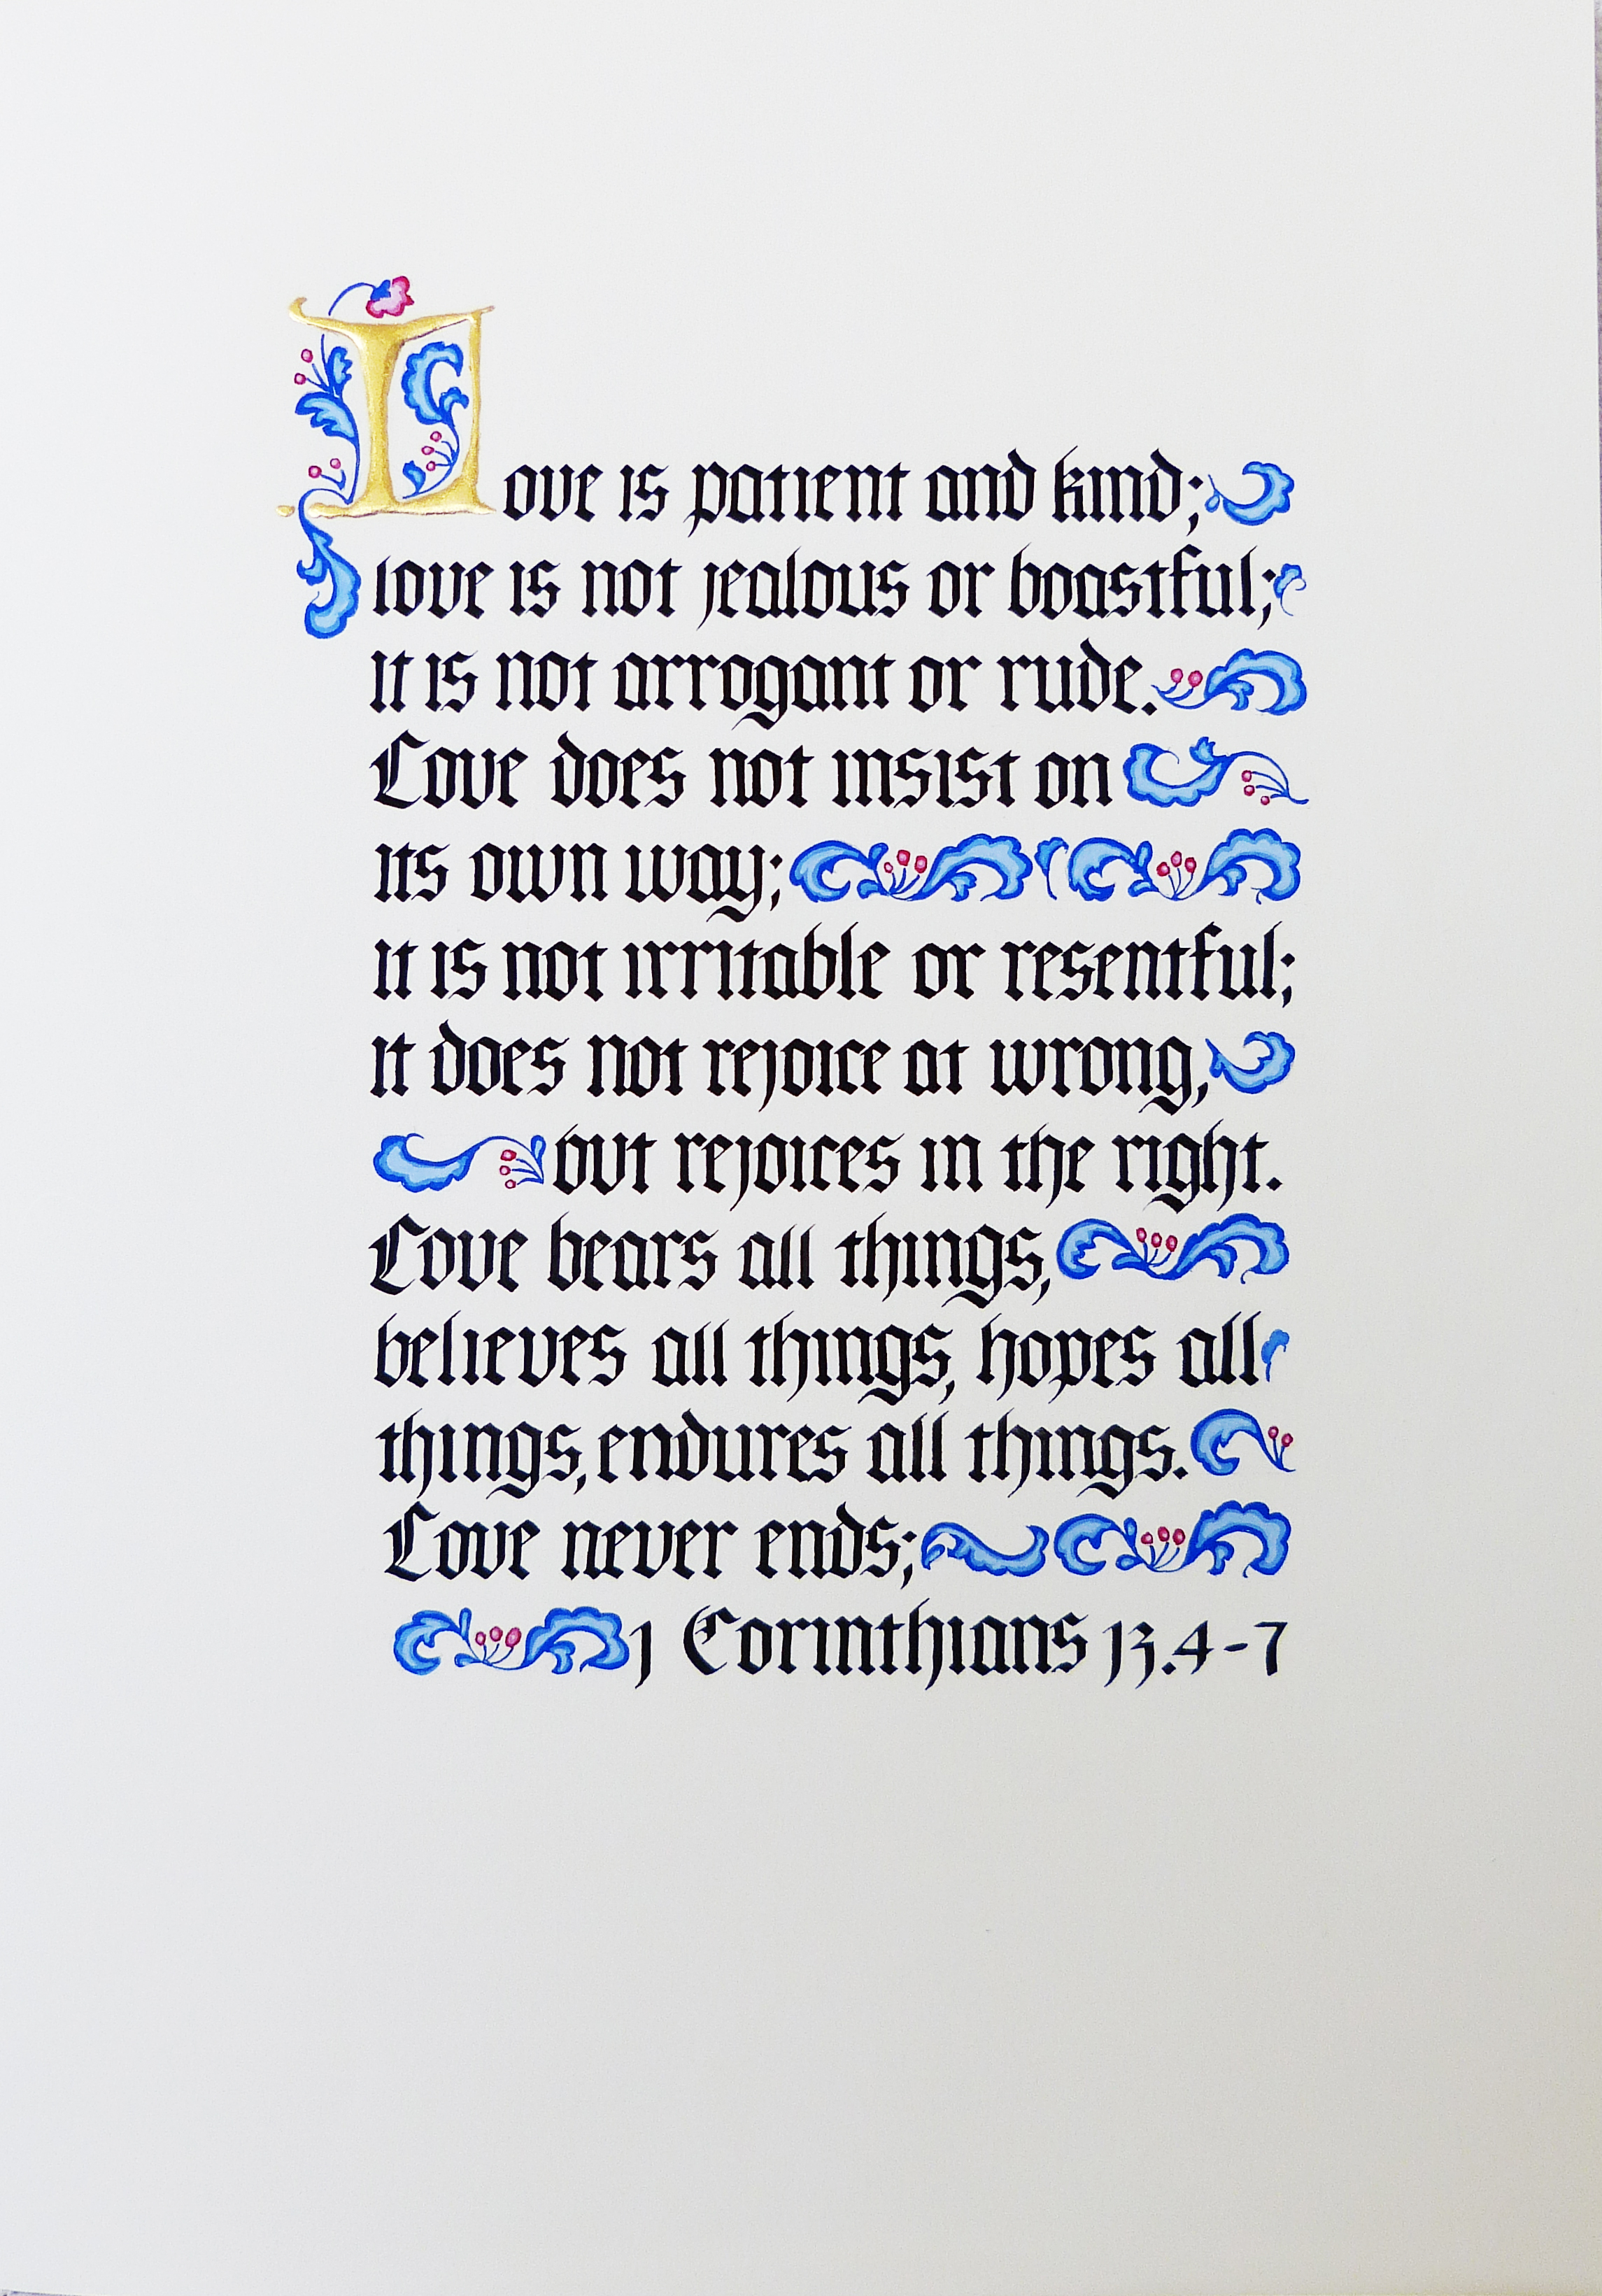 Love is patient and kind;
love is not jealous or boastful;
it is not arrogant or rude.
Love does not insist on
its own way;
it is not irritable or resentful;
it does not rejoice at wrong,
but rejoices in the right.
Love bears all things,
believes all things, hopes all
things, endures all things.
Love never ends;
1 Corinthians 13.4-7